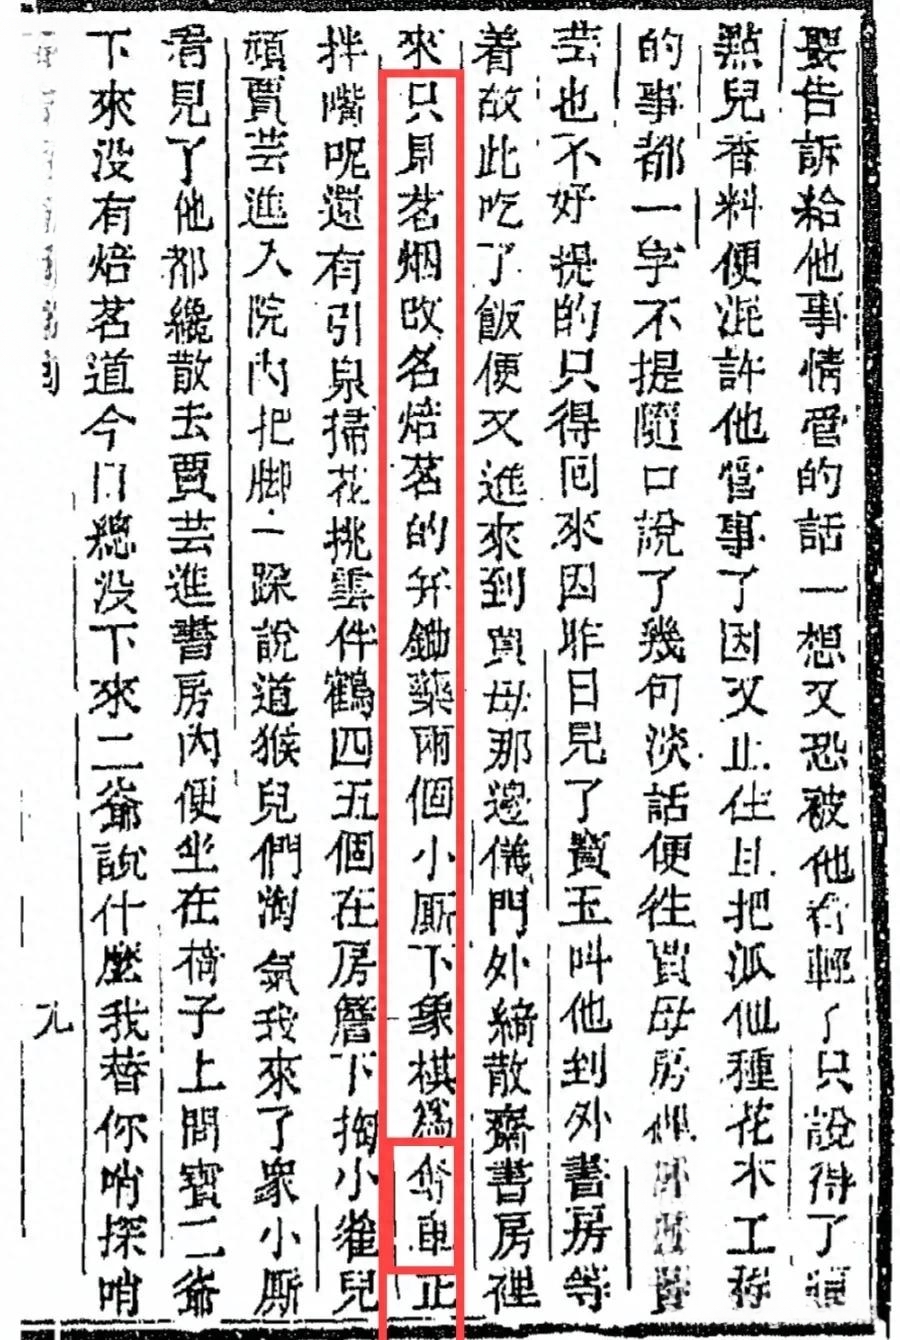 要告訴給他事情管的話一想又恐被他看輕了只說得了這
點兒香料便混許他管事了因又止住且把派他種花木工程
的事都一字不提隨口說了幾句淡話便往賈母房裡
芸也不好提的只得回來因昨日見了寶玉叫他到外書房等
着故此吃了飯便又進來到賈母那邊儀門外綺散齋書房裡
來只見茗烟改名焙茗的并鋤藥兩個小厮下象棋為奪車正
拌嘴呢還有引泉掃花挑雲伴鶴四五個在房簷下掏小雀兒
頑賈芸進入院內把脚一跺說道猴兒們淘氣我來了衆小厮
看見了他都纔散去賈芸進書房內便坐在椅子上問寶二爺
下來没有焙茗道今日總没下來二爺說什麽我替你哨探哨
九